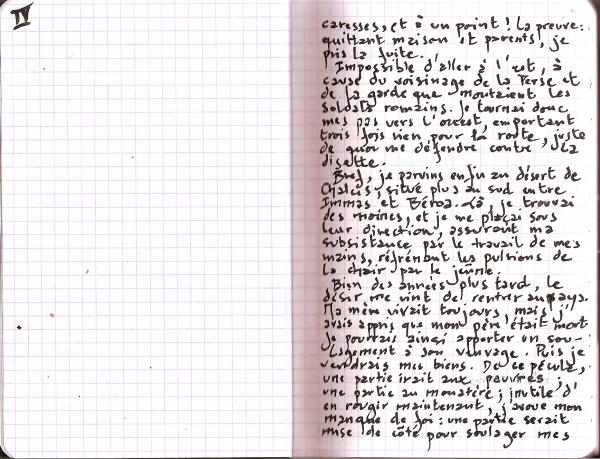 IV
caresses, et à un point ! La preuve :
quittant maison et parents, je
pris la fuite.
Impossible d'aller à l'est, à
cause du voisinage de la Perse et
de la garde que montaient les
soldats romains. Je tournai donc
mes pas vers l'ouest, emportant
trois fois rien pour la route, juste
de quoi me défendre contre la
disette.
Bref, je parvins enfin au désert de
Chalcis, situé plus au sud entre
Immas et Béroa. Là, je trouvai
des moines, et je me plaçai sous
leur direction, assurant ma
subsistance par le travail de mes
mains, réfrénant les pulsions de
la chair par le jeûne.
Bien des années plus tard, le
désir me vint de rentrer au pays.
Ma mère vivait toujours, mais j'
avais appris que mon père était mort.
Je pourrais ainsi apporter un sou-
lagement à son veuvage. Puis je
vendrais mes biens. De ce pécule,
une partie irait aux pauvres ;
une partie au monastère ; inutile d'
en rougir maintenant, j'avoue mon
manque de foi : une partie serait
mise de côté pour soulager mes